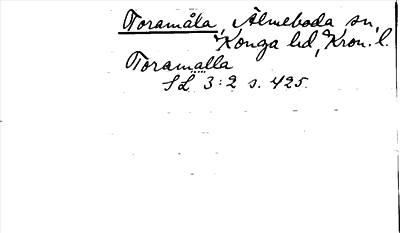 Toramåla, Älmeboda sn,
Konga hd, Kron. l.
Toramålla
SL 3:2 s. 425.